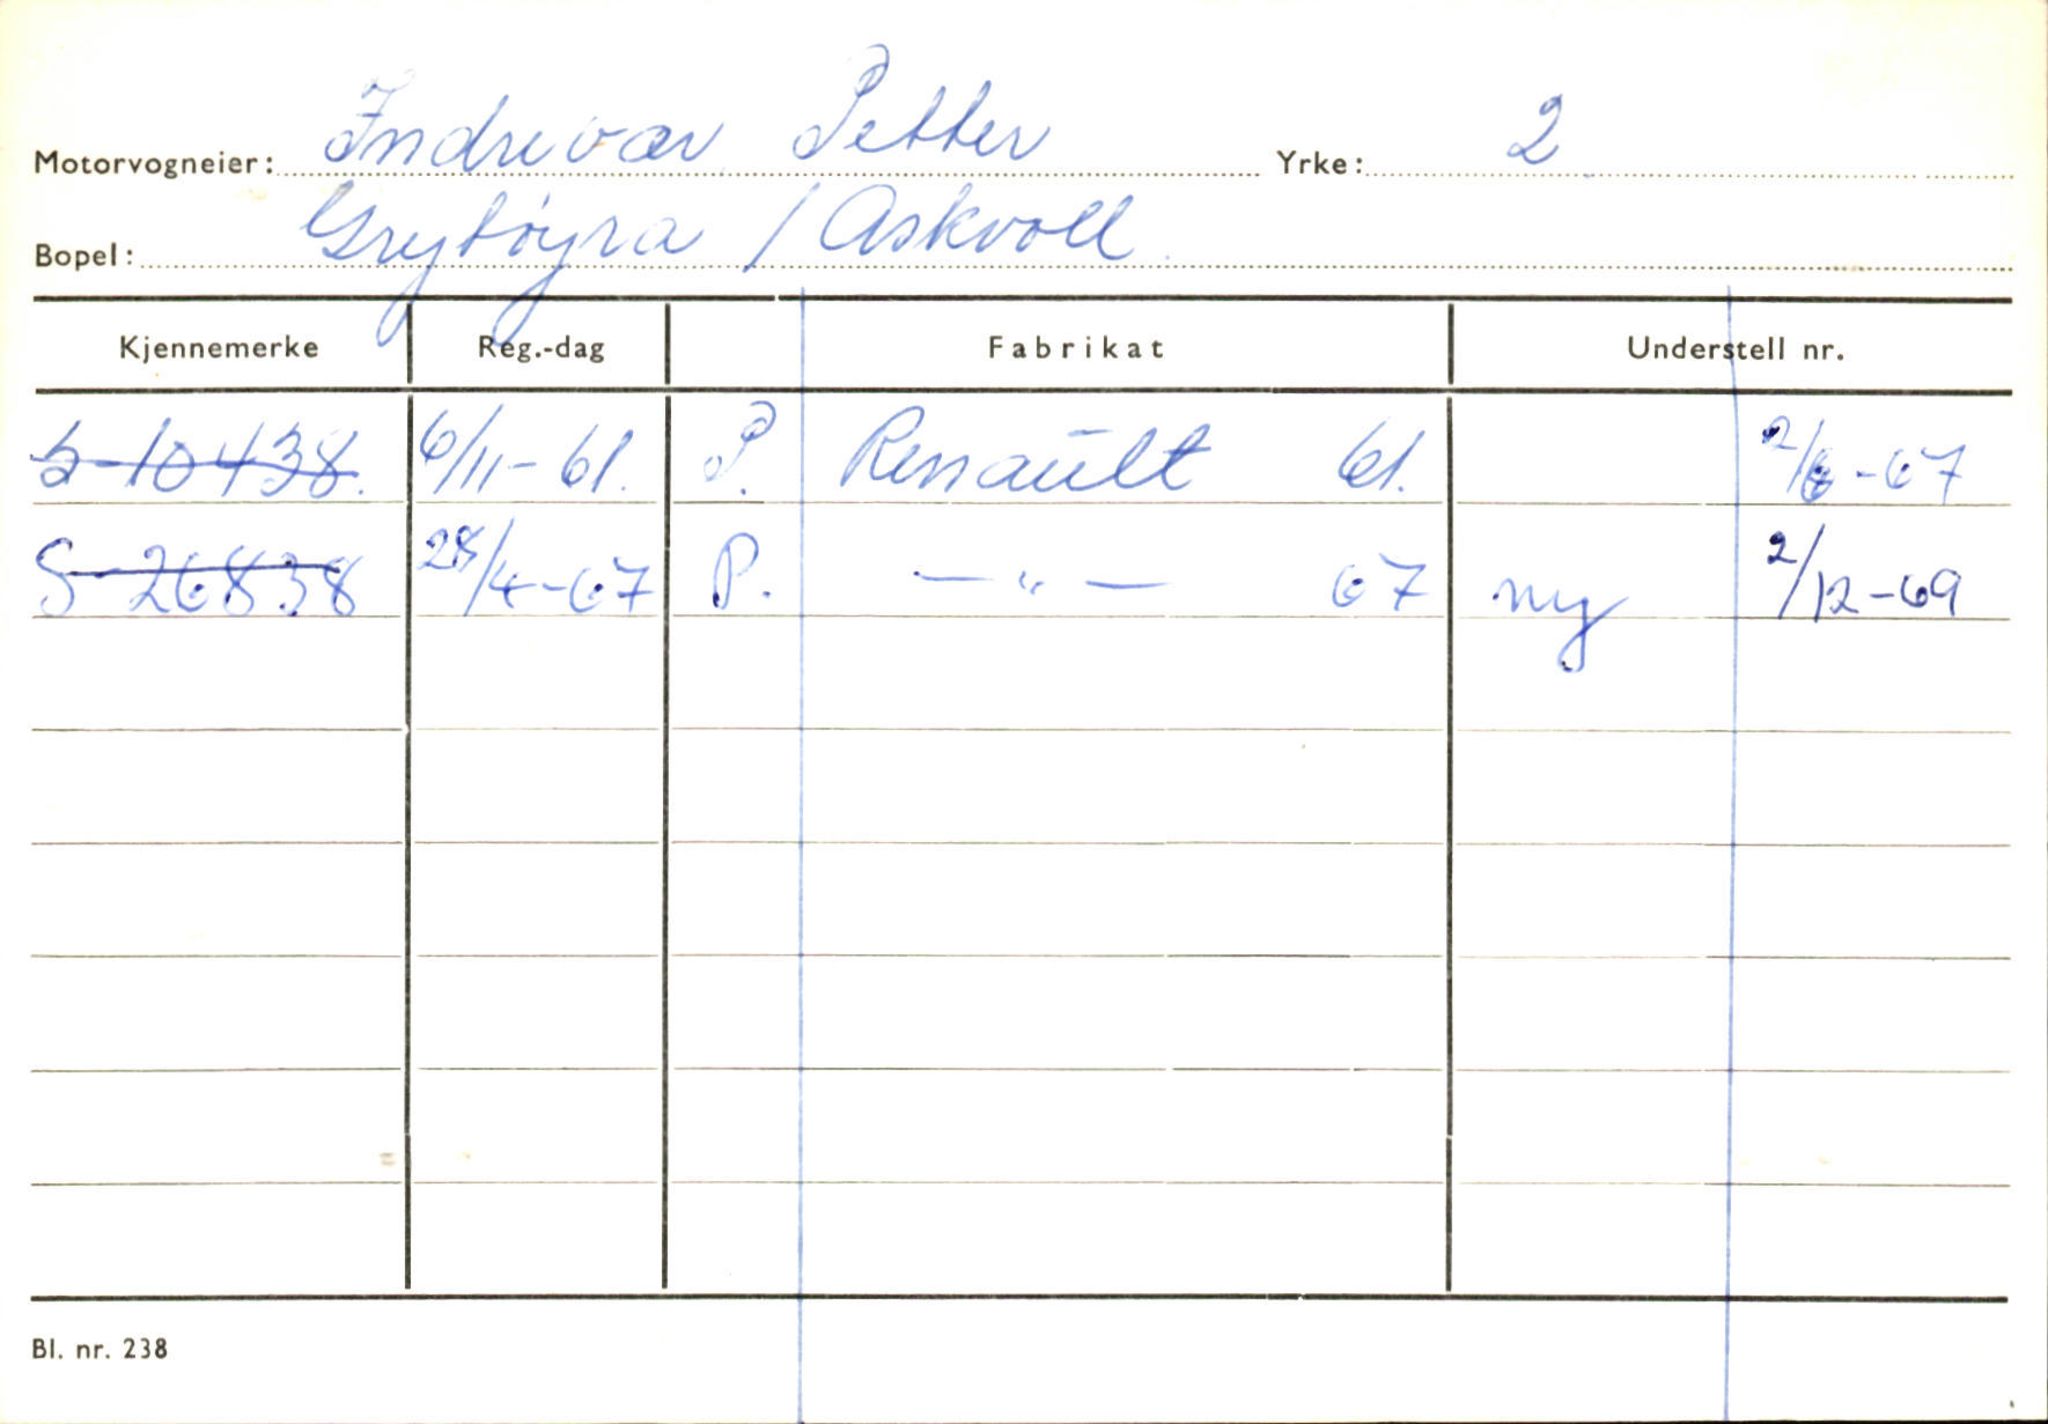 Motorvogneier: Indrevær Petter Yrke: 2
Bopel: Grytøyra / Askvoll
Kjennemerke Reg.-dag Fabrikat Understell nr.
S-10438. 6/11-61. P. Renault 61. 2/6-67
S-26838 28/4-67 P. —"— 67 ny 2/12-69
Bl. nr. 238